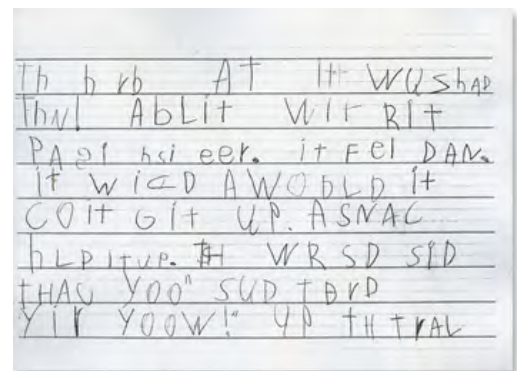 Th h rb AT It WQShAD
ThNl AbLit Wir Rit
PA2i hsi eer. it FEl DAN.
it WicD AWOBLD it
COit Git UP. ASNAC
hLP itUP. TH WRSD SID
tHAC YOO" SUD tBrD
Yir YOOW!" YP tH trAL